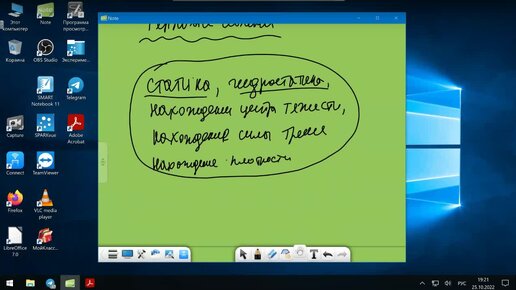 Этот компьютер
Note
Программа просмотр...
Корзина
OBS Studio
Эксперимe...
SMART Notebook 11
Telegram
Capture
SPARKvue
Adobe Acrobat
TeamViewer
Firefox
VLC media player
LibreOffice 7.0
МойКласс...
Note
СТАТИКА, гидростатика,
нахождение центра тяжести,
нахождение силы трения
нахождение плотности
РУС
19:21
25.10.2022